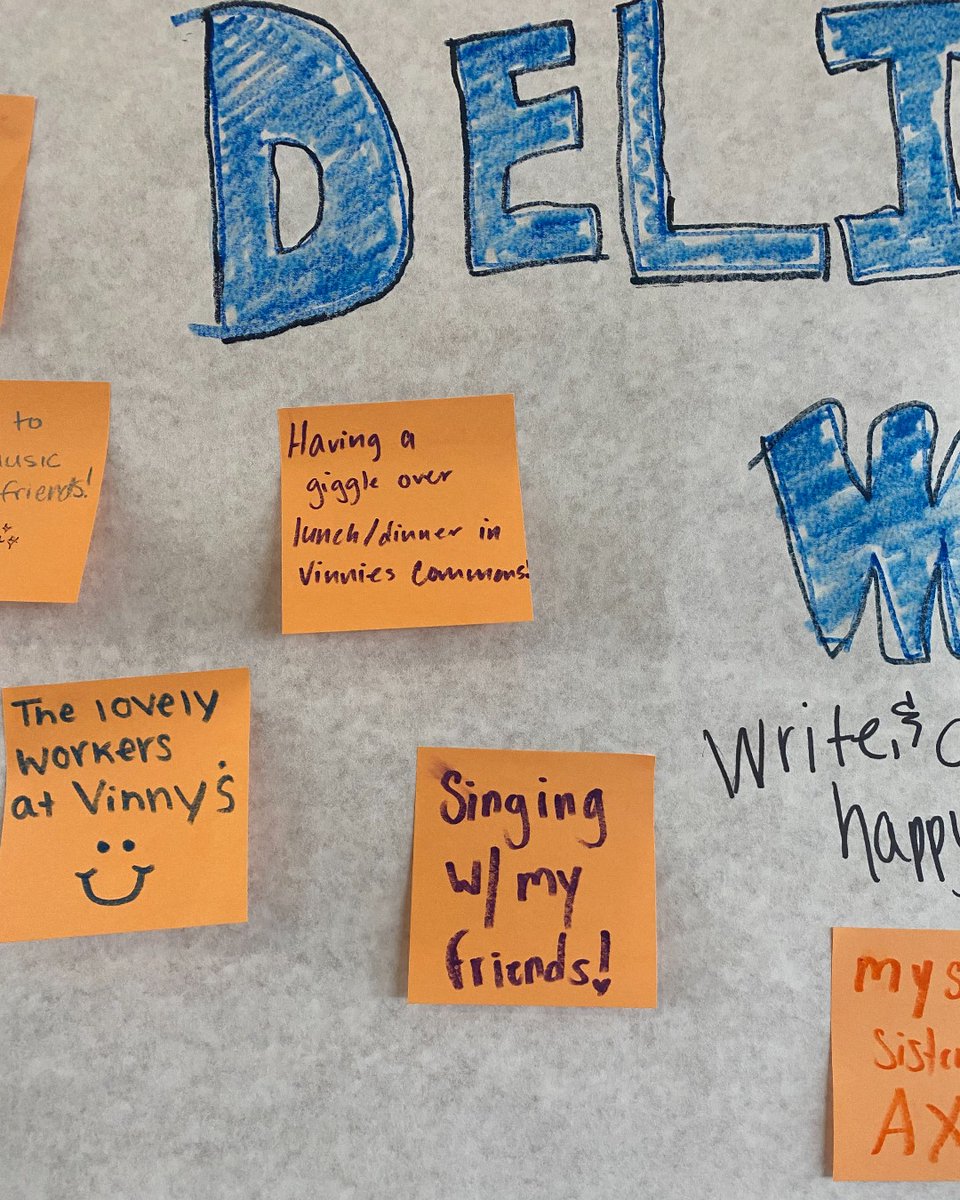 DELI
to
music
friends!
Having a
giggle over
lunch/dinner in
Vinnies Commons!
W
The lovely
workers
at Vinny's
Write, &
happy
Singing
w/ my
friends!
my s
Sister
AX